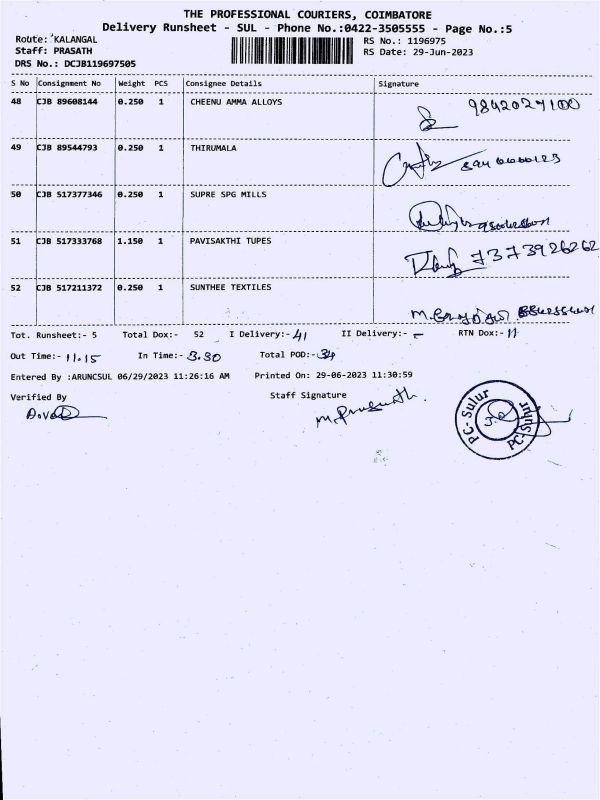 THE PROFESSIONAL COURIERS, COIMBATORE
Delivery Runsheet - SUL - Phone No.:0422-3505555 - Page No.:5
Route: KALANGAL RS No.: 1196975
Staff: PRASATH RS Date: 29-Jun-2023
DRS No.: DCJB119697505
S No Consignment No Weight PCS Consignee Details Signature
48 CJB 89608144 0.250 1 CHEENU AMMA ALLOYS
49 CJB 89544793 0.250 1 THIRUMALA
50 CJB 517377346 0.250 1 SUPRE SPG MILLS
51 CJB 517333768 1.150 1 PAVISAKTHI TUPES 7373926262
52 CJB 517211372 0.250 1 SUNTHEE TEXTILES
Tot. Runsheet:- 5 Total Dox:- 52 I Delivery:- 41 II Delivery:- - RTN Dox:- 11
Out Time:- 11.15 In Time:- 3.30 Total POD:- 34
Entered By :ARUNCSUL 06/29/2023 11:26:16 AM Printed On: 29-06-2023 11:30:59
Verified By Staff Signature
M.Prasath.
PC- Sulur PC- Sulur